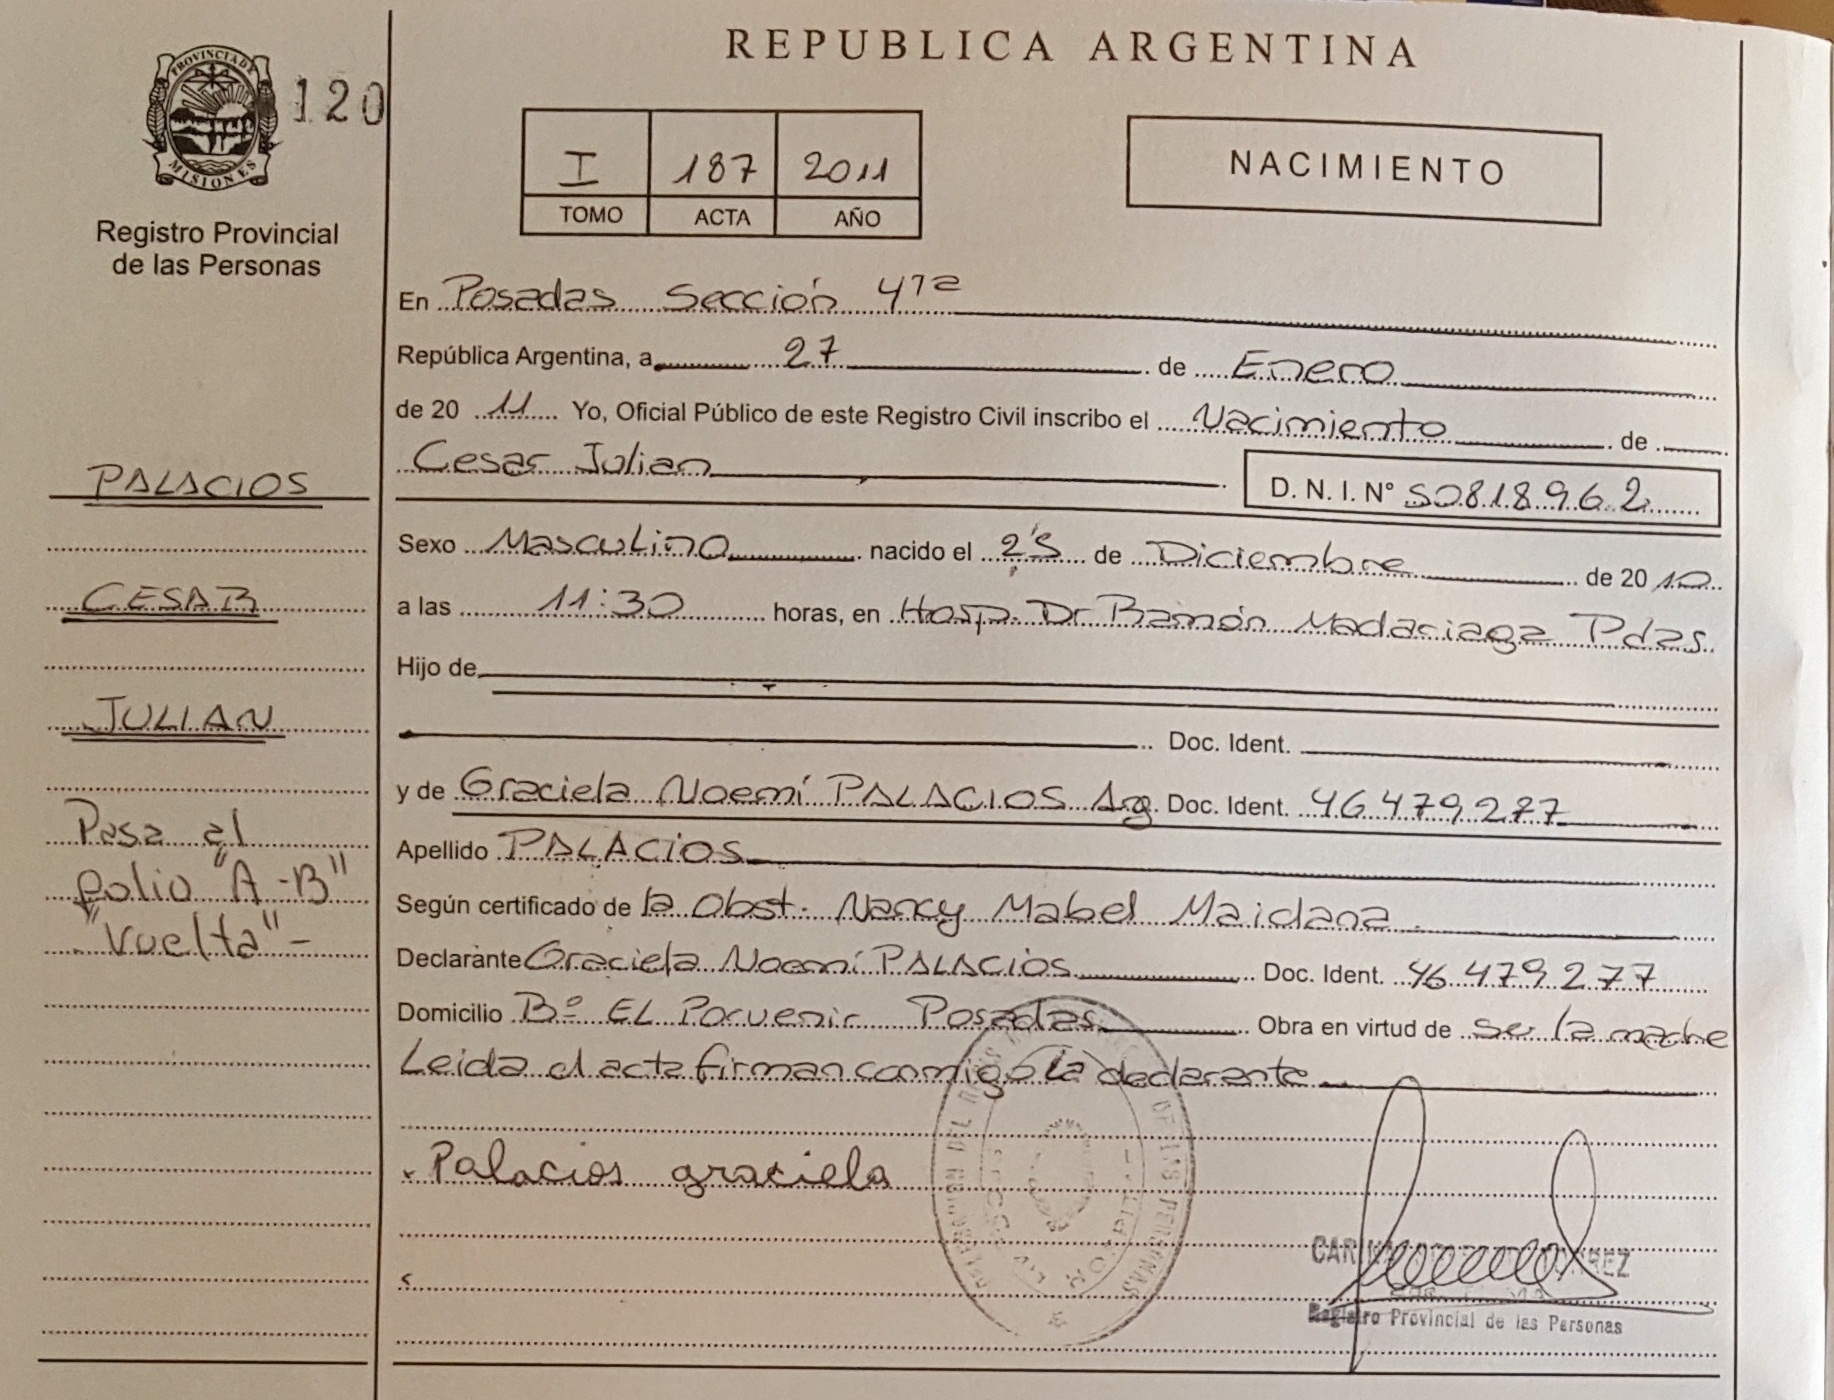 REPUBLICA ARGENTINA
PROVINCIA DE
MISIONES
120
Registro Provincial
de las Personas
I 187 2011
TOMO ACTA AÑO
NACIMIENTO
En Posadas Sección 4ta
República Argentina, a 27 de Enero
de 20 11 Yo, Oficial Público de este Registro Civil inscribo el Nacimiento de
Cesar Julian D. N. I. Nº 50818962
Sexo Masculino nacido el 25 de Diciembre de 20 10
a las 11:30 horas, en Hosp. Dr Ramón Madariaga Pdas.
Hijo de
Doc. Ident.
y de Graciela Noemí PALACIOS Arg. Doc. Ident. 46.479.277
Apellido PALACIOS
Según certificado de la Obst. Nancy Mabel Maidana
Declarante Graciela Noemí PALACIOS Doc. Ident. 46.479.277
Domicilio Bº EL Porvenir Posadas Obra en virtud de se la madre
Leida el acta firman conmigo la declarante
x Palacios graciela
Registro Provincial de las Personas
PALACIOS
CESAR
JULIAN
Pasa al
folio "A-B"
"Vuelta"-